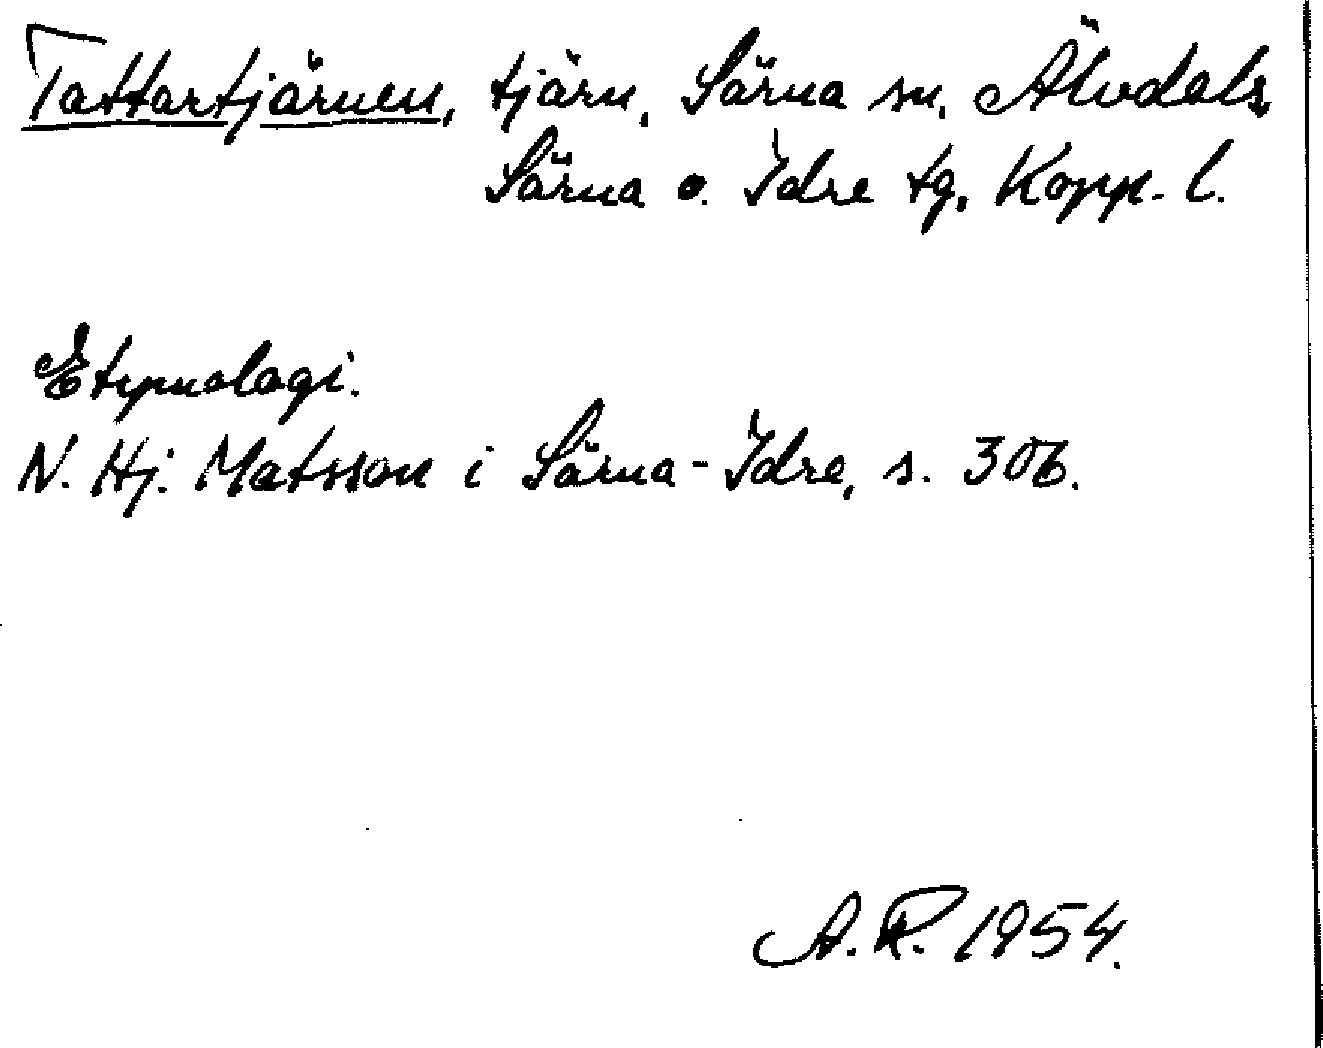 Tattartjärnen, tjärn, Särna sn, Älvdals,
Särna o. Idre tg, Kopp. l.
Etymologi.
N. Hj. Matsson i Särna-Idre, s. 306.
A.R. 1954.